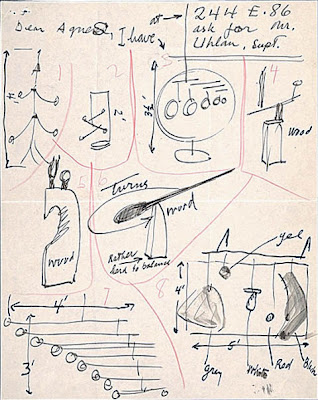 Dear Agnes, I have
or →
244 E. 86
ask for Mr.
Uhlan, Supt.
1
2
3
4
4'
2'
3½'
wood
5
6
Turns
wood
wood
Rather
hard to balance
7
8
4'
3'
yel
4'
5'
Grey
White
Red
Black